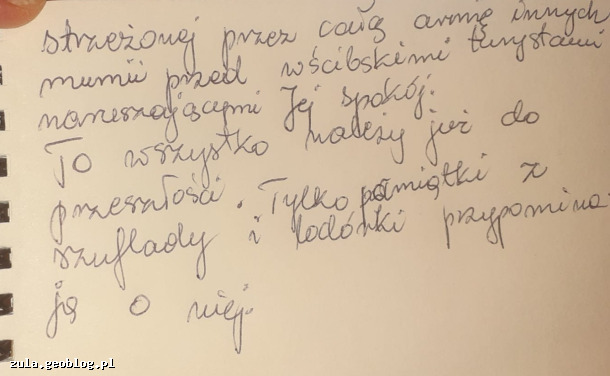 strzeżonej przez całą armię innych
mumii przed wścibskimi turystami
naruszającymi Jej spokój.
To wszystko należy już do
przeszłości. Tylko pamiątki z
szuflady i lodówki przypomina-
ją o niej.
zula.geoblog.pl